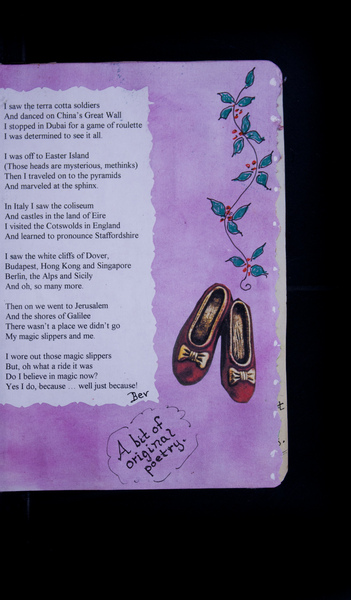 I saw the terra cotta soldiers
And danced on China's Great Wall
I stopped in Dubai for a game of roulette
I was determined to see it all.
I was off to Easter Island
(Those heads are mysterious, methinks)
Then I traveled on to the pyramids
And marveled at the sphinx.
In Italy I saw the coliseum
And castles in the land of Eire
I visited the Cotswolds in England
And learned to pronounce Staffordshire
I saw the white cliffs of Dover,
Budapest, Hong Kong and Singapore
Berlin, the Alps and Sicily
And oh, so many more.
Then on we went to Jerusalem
And the shores of Galilee
There wasn't a place we didn't go
My magic slippers and me.
I wore out those magic slippers
But, oh what a ride it was
Do I believe in magic now?
Yes I do, because … well just because!
Bev
A bit of
original
poetry.